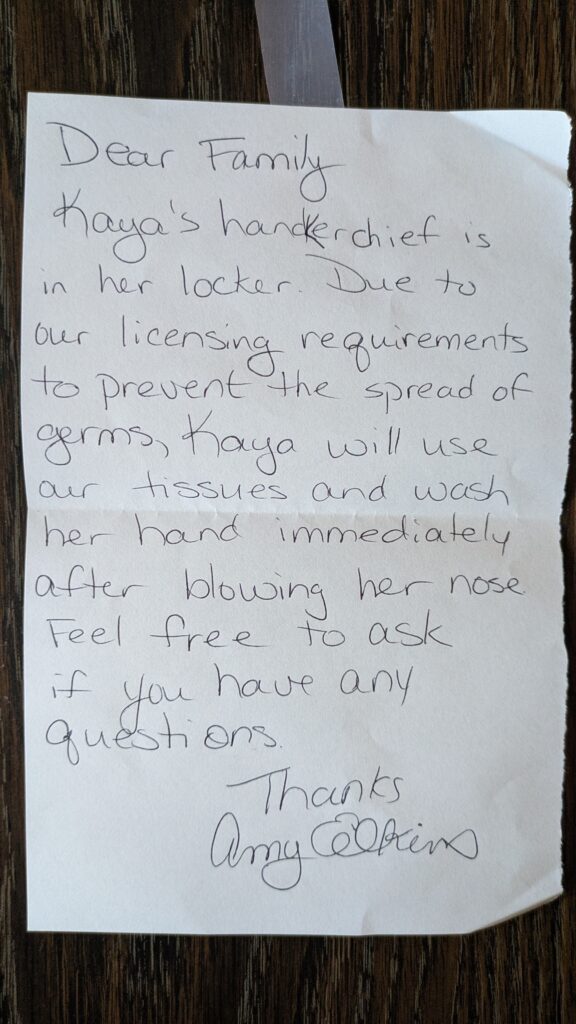 Dear Family
Kaya's handkerchief is
in her locker. Due to
our licensing requirements
to prevent the spread of
germs, Kaya will use
our tissues and wash
her hand immediately
after blowing her nose.
Feel free to ask
if you have any
questions.
Thanks
Amy